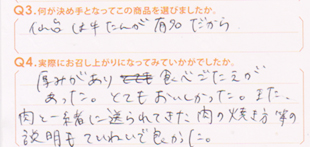 Q3.何が決め手となってこの商品を選びましたか。
仙台は牛たんが有名だから
Q4.実際にお召し上がりになってみていかがでしたか。
厚みがあり とても 食べごたえが
あった。とてもおいしかった。また、
肉と一緒に送られてきた肉の焼き方等の
説明もていねいで良かった。